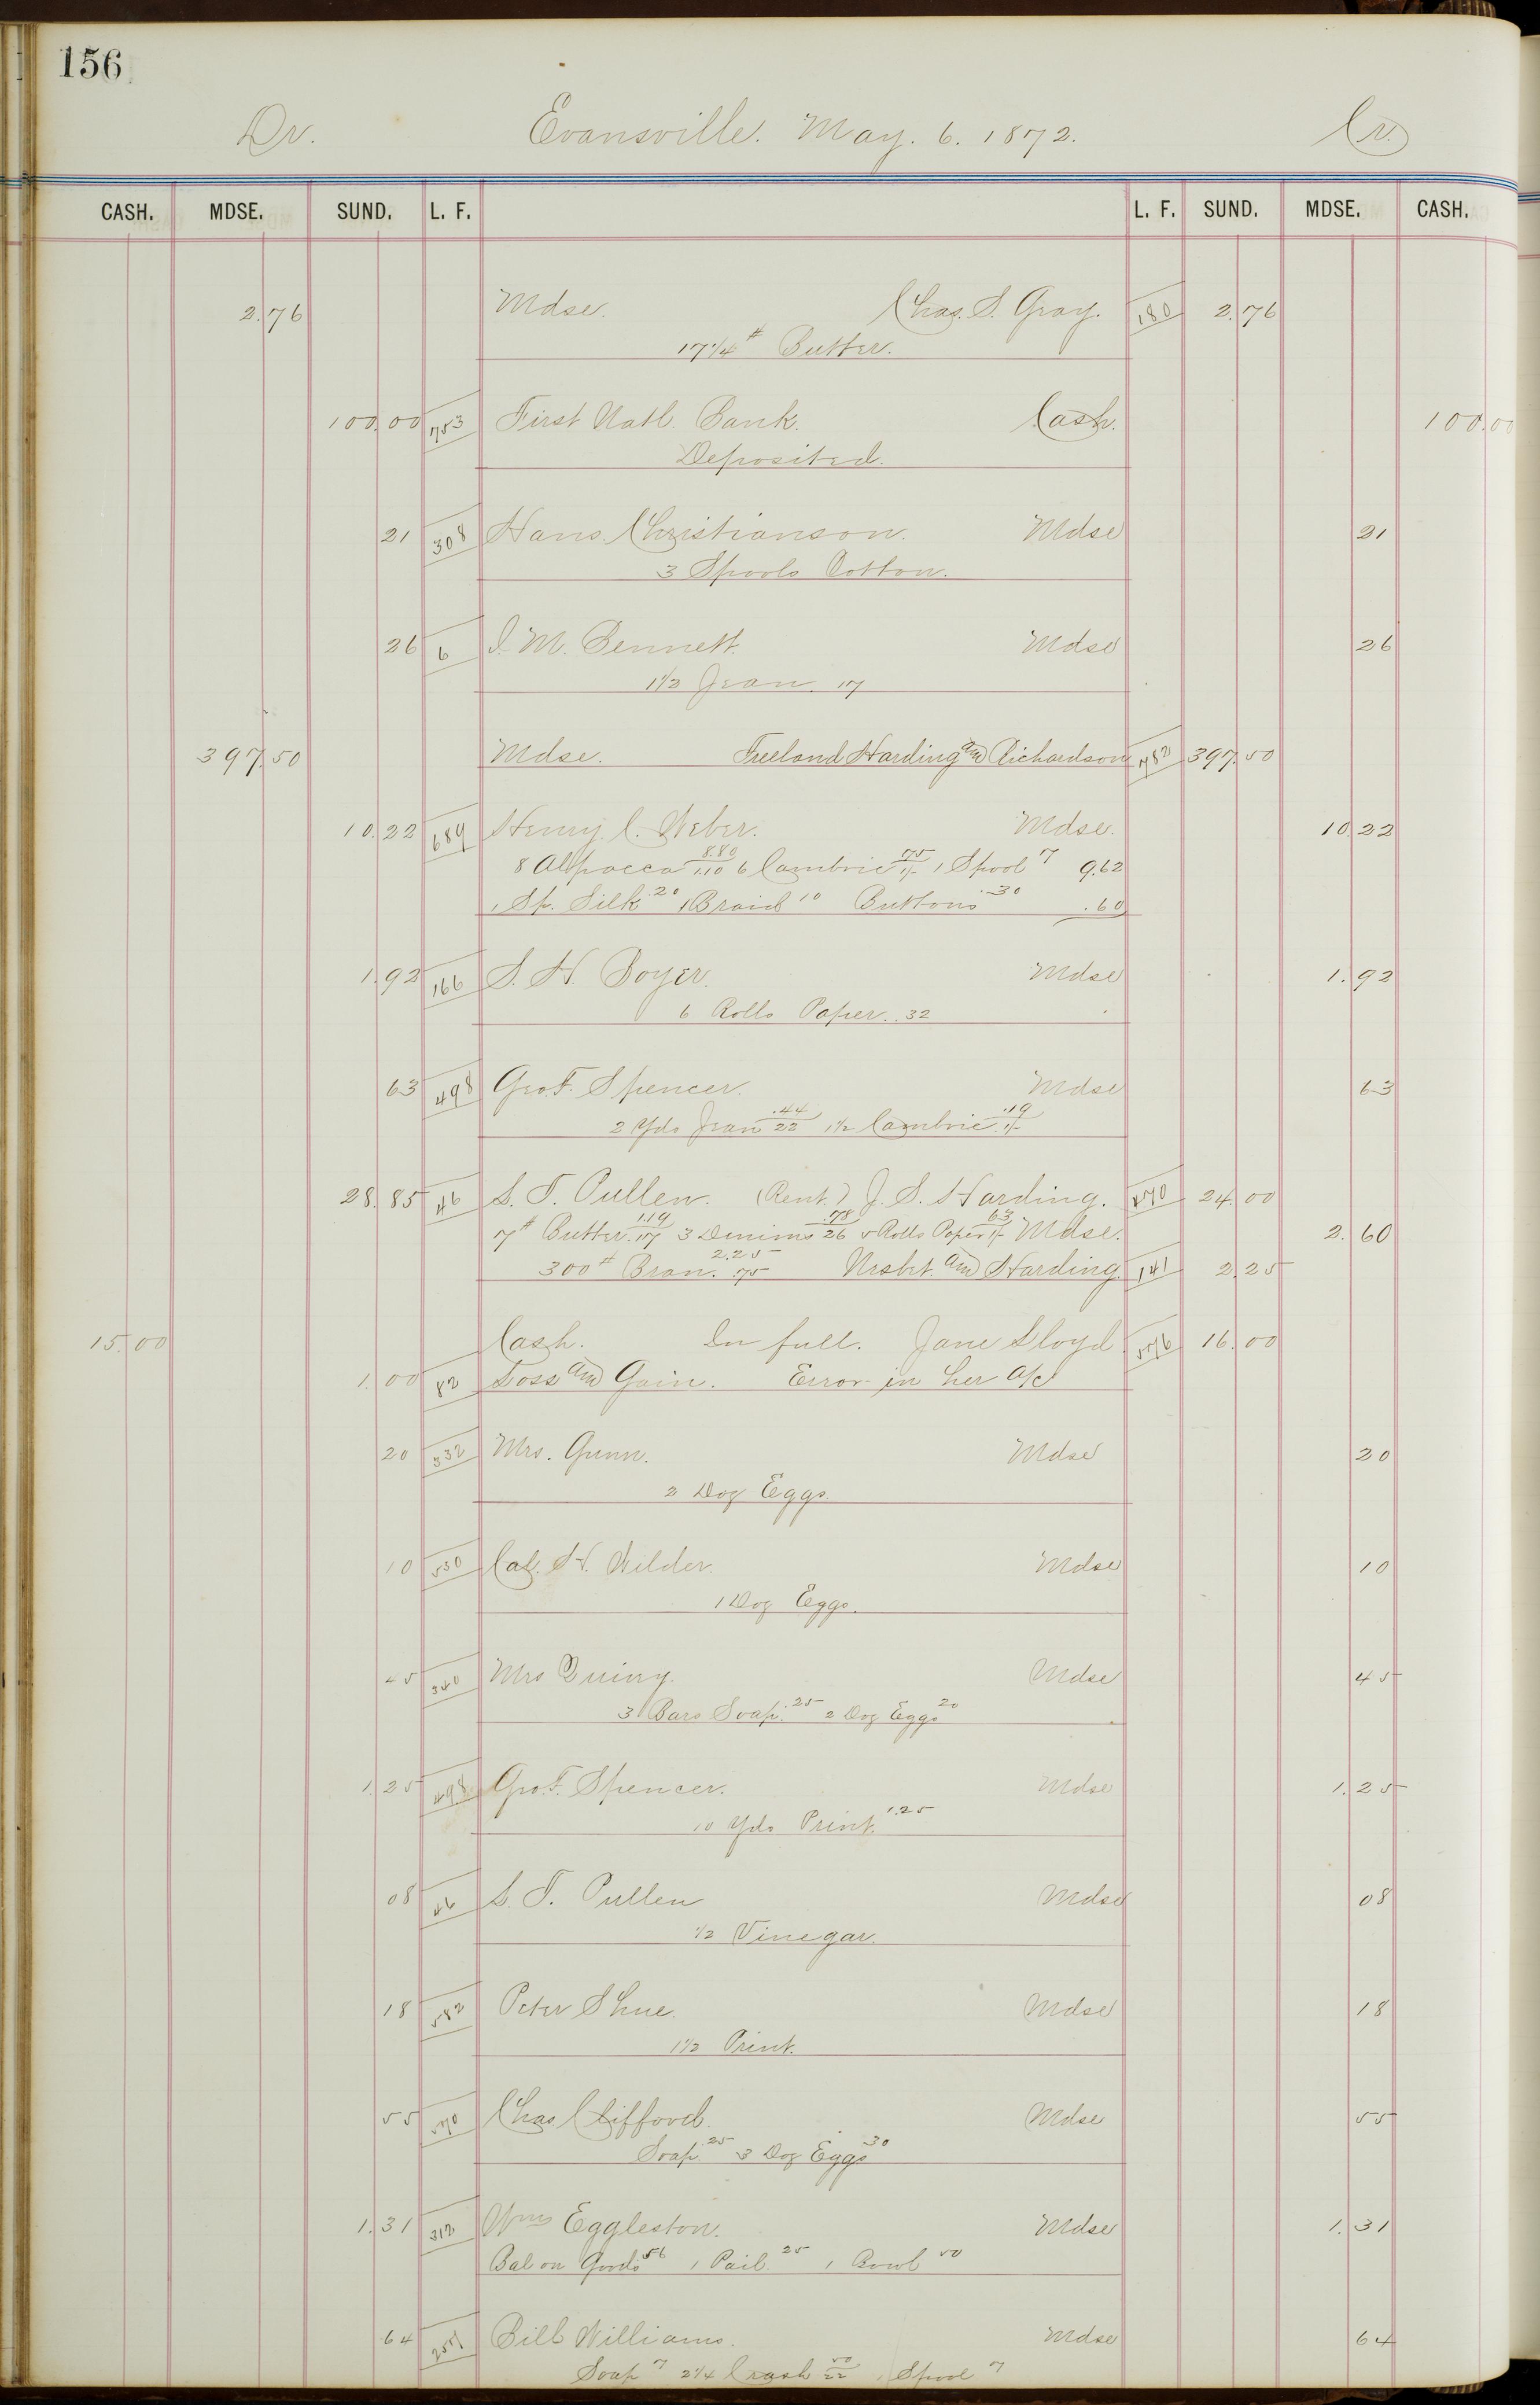 156
Dr. Evansville. May. 6. 1872. Cr.
CASH. MDSE. SUND. L. F. L. F. SUND. MDSE. CASH.
2.76 Mdse. Chas. S. Gray. 180 2.76
17 1/4 # Butter.
100.00 753 First Natl. Bank. Cash. 100.00
Deposited.
21 308 Hans. Christianson. Mdse 21
3 Spools Cotton.
26 6 I. M. Bennett. Mdse 26
1 1/2 Jean. 17
397.50 Mdse. Freeland Harding and Richardson 782 397.50
10.22 689 Henry C. Weber. Mdse. 10.22
8 Alpacca 8.80 1.10 6 Cambric 75 1/- 1 Spool 7 9.62
1 Sp. Silk 20 1 Braid 10 Buttons 30 .60
1.92 166 S. H. Boyer. Mdse 1.92
6 Rolls Paper. .32
63 498 Geo. F. Spencer. Mdse 63
2 Yds Jean .44 22 1 1/2 Cambric .19 1/-
28.85 46 L. T. Pullen. (Rent.) J. S. Harding. 470 24.00
7 # Butter 1.19 .17 3 Denims .78 26 5 Rolls Paper 63 1/- Mdse. 2.60
300 # Bran. 2.25 .75 Nesbit and Harding. 141 2.25
15.00 Cash. In full. Jane Lloyd 576 16.00
1.00 82 Loss and Gain. Error in her a/c
20 332 Mrs. Gunn. Mdse 20
2 Doz Eggs.
10 550 Cal. H. Wilder. Mdse 10
1 Doz Eggs.
45 340 Mrs Quiny. Mdse 45
3 Bars Soap. 25 2 Doz Eggs 20
1.25 498 Geo. F. Spencer. Mdse 1.25
10 Yds Print. 1.25
08 46 L. T. Pullen Mdse 08
1/2 Vinegar.
18 582 Peter Shue. Mdse 18
1 1/2 Print.
55 570 Chas Clifford. Mdse 55
Soap. 25 3 Doz Eggs 30
1.31 312 Wm Eggleston. Mdse 1.31
Bal on Goods 56 1 Pail. 25 1 Bowl 50
64 257 Bill Williams. Mdse 64
Soap 7 2 1/4 Crash 50 22 1 Spool 7